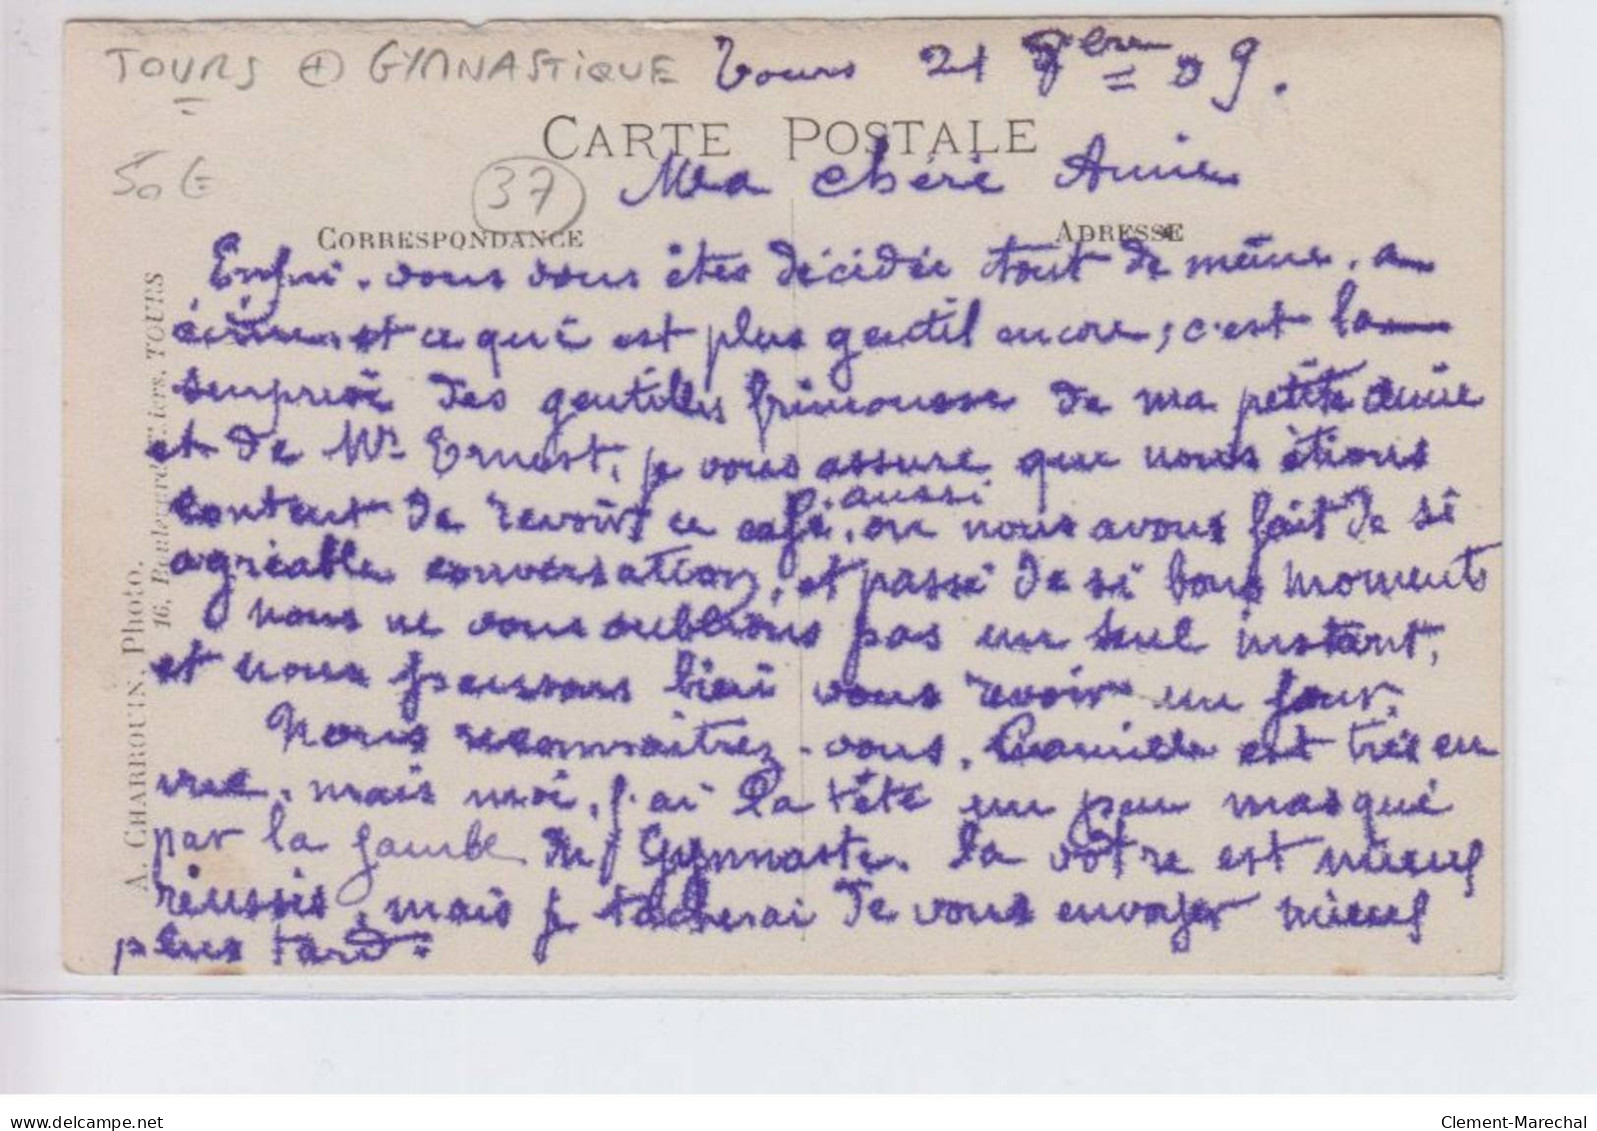 TOURS + GYMNASTIQUE Tours 21 9bre 09.
CARTE POSTALE
50 € 37 Ma chéré Amie
CORRESPONDANCE ADRESSE
Enfin. vous vous êtes décidée tout de même. a
écrire. et ce qui est plus gentil encore; c'est la
surprise des gentilles frimousse de ma petite amie
et de Mr Ernest, je vous assure que nous étions
content de revoir ce café, aussi ou nous avons fait de si
agréable conversation, et passé de si bons moments
nous ne vous oublions pas un seul instant,
et nous pensons bien vous revoir un jour.
Nous reconnaitrez-vous. Camille est très en
vue. mais moi, j'ai la tête un peu masqué
par la jambe du Gymnaste. la vôtre est mieux
réussis, mais je tâcherai de vous envoyer mieux
plus tard.
A. CHARBOUIN, Photo.
16, Boulevard Thiers, TOURS
www.delcampe.net
Clement-Marechal